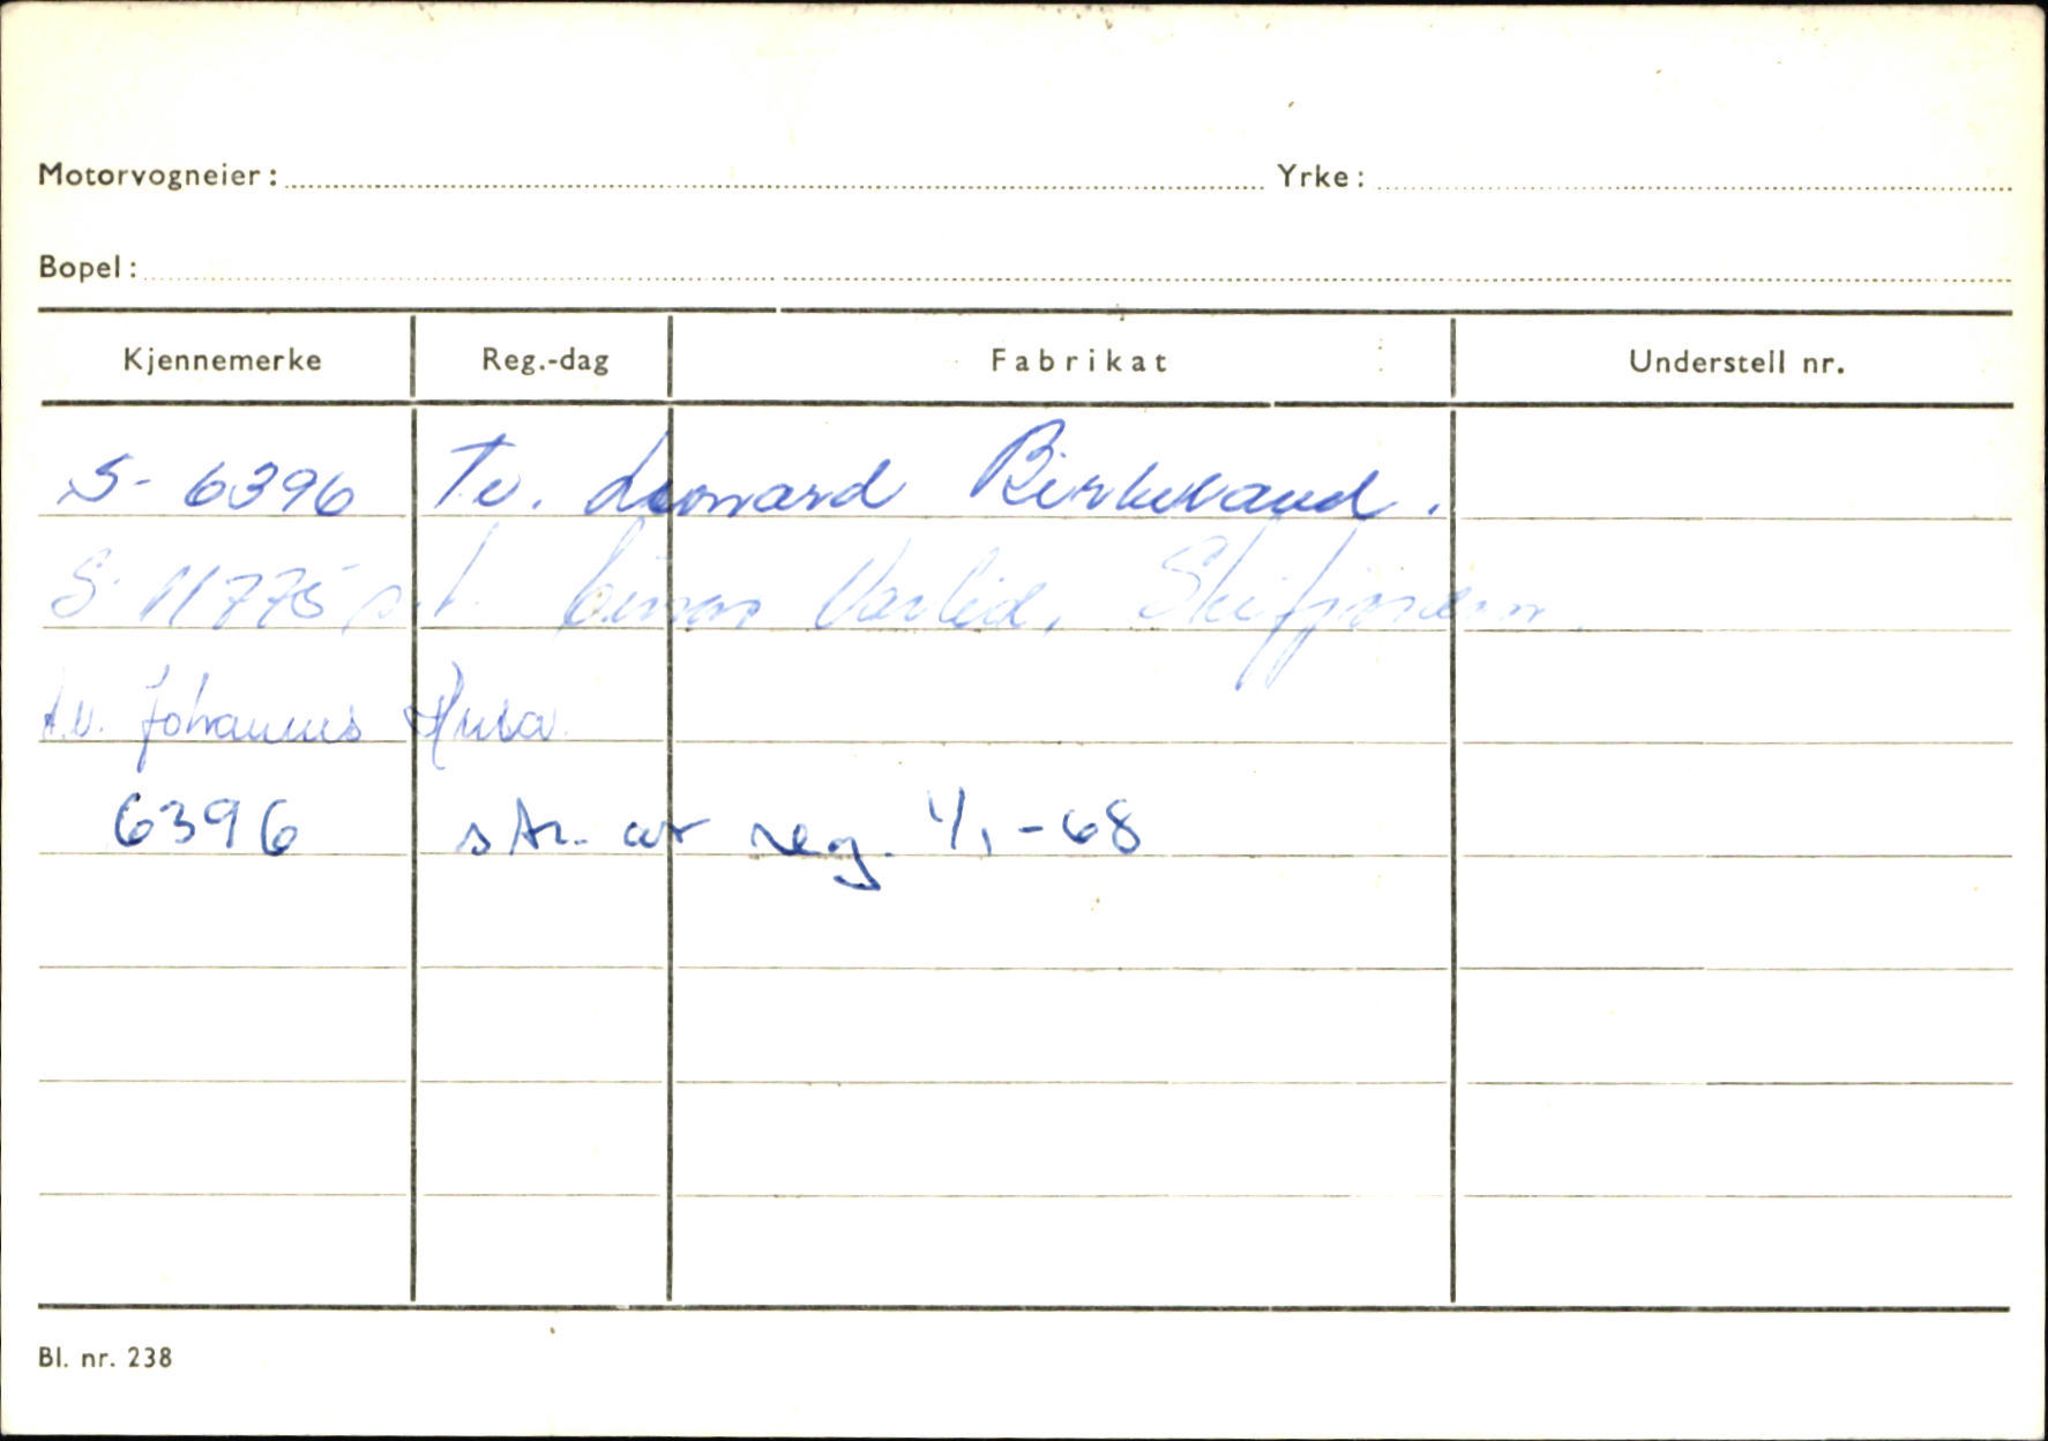 Motorvogneier: Yrke:
Bopel:
Kjennemerke Reg.-dag Fabrikat Understell nr.
S- 6396 Tv. Leonard Birkeland.
S- 11775 Varlid, Skifjorden.
t.v. Johannes Husa.
6396 str. av reg. 1/1-68
Bl. nr. 238